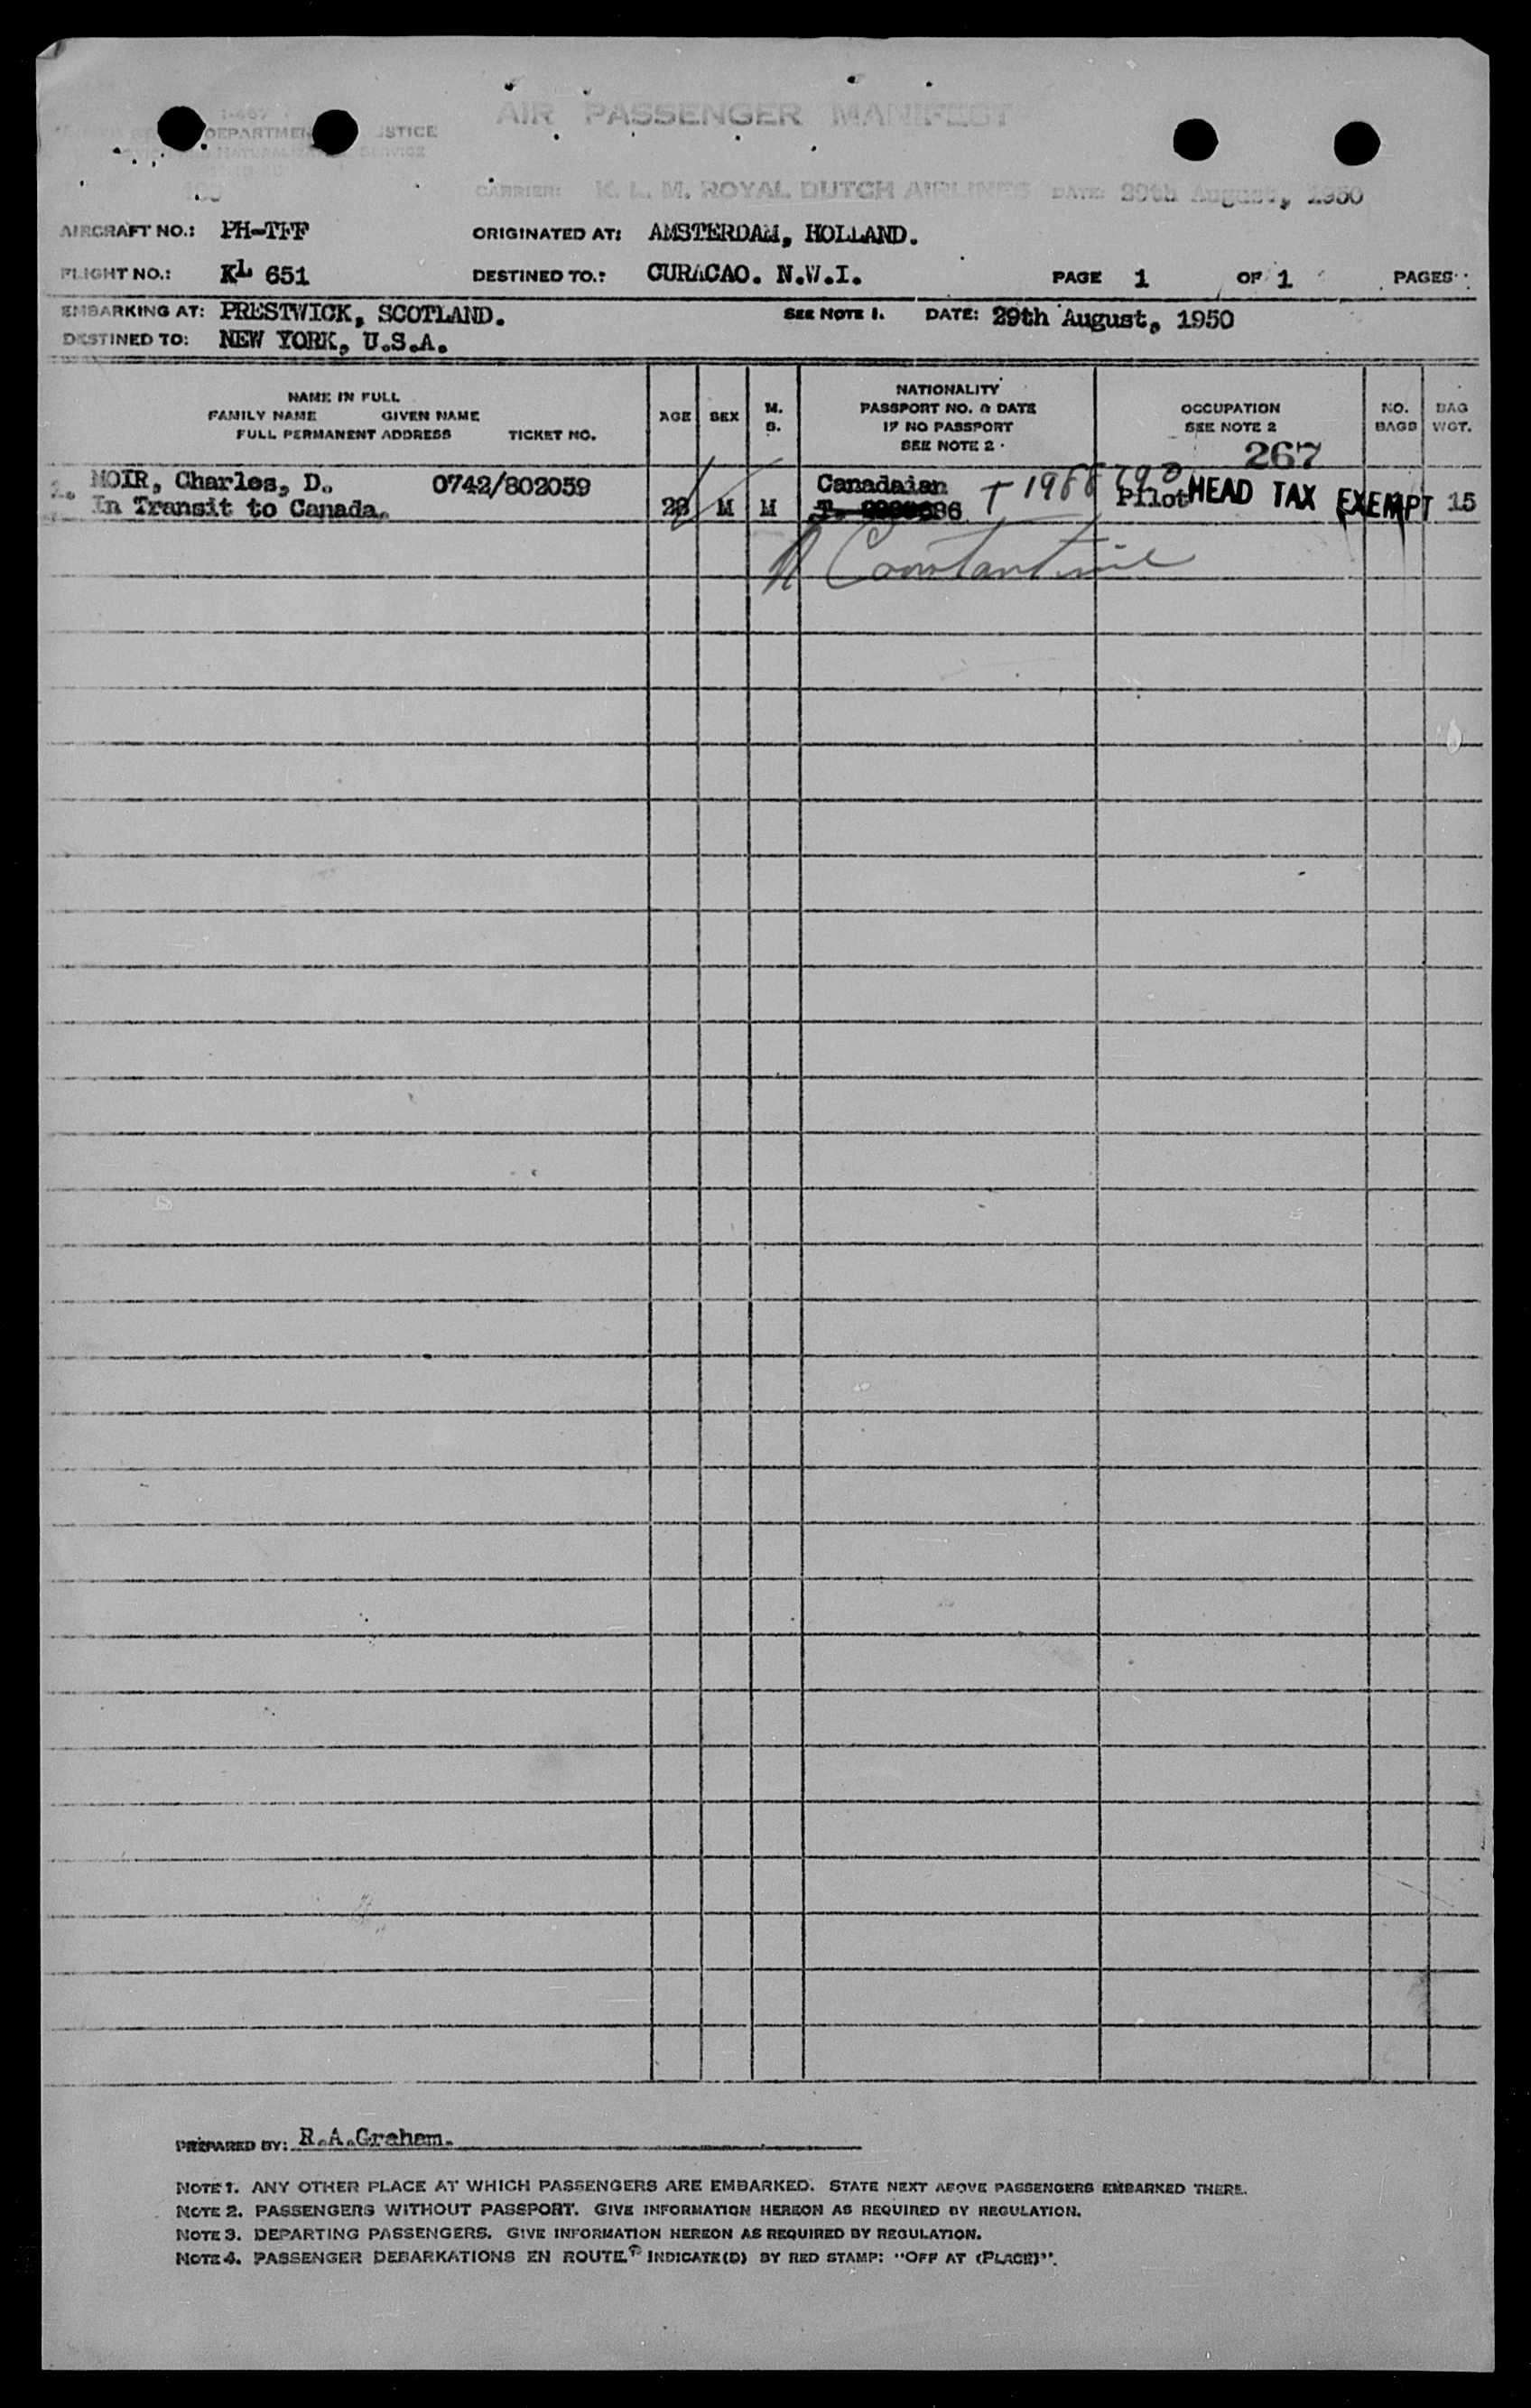 I-467
DEPARTMENT JUSTICE
NATURALIZATION SERVICE
AIR PASSENGER MANIFEST
CARRIER: K. L. M. ROYAL DUTCH AIRLINES DATE: 29th August, 1950
AIRCRAFT NO.: PH-TFF ORIGINATED AT: AMSTERDAM, HOLLAND.
FLIGHT NO.: KL 651 DESTINED TO.: CURACAO. N.W.I. PAGE 1 OF 1 PAGES
EMBARKING AT: PRESTWICK, SCOTLAND. SEE NOTE 1. DATE: 29th August, 1950
DESTINED TO: NEW YORK, U.S.A.
NAME IN FULL
FAMILY NAME GIVEN NAME
FULL PERMANENT ADDRESS TICKET NO.
AGE SEX M. S.
NATIONALITY
PASSPORT NO. & DATE
IF NO PASSPORT
SEE NOTE 2
OCCUPATION
SEE NOTE 2
NO. BAGS
BAG WGT.
267
MOIR, Charles, D. 0742/802059 Canadaian
In Transit to Canada. 28 M M Pilot HEAD TAX EXEMPT 15
Constantine
PREPARED BY: R.A.Graham.
NOTE 1. ANY OTHER PLACE AT WHICH PASSENGERS ARE EMBARKED. STATE NEXT ABOVE PASSENGERS EMBARKED THERE.
NOTE 2. PASSENGERS WITHOUT PASSPORT. GIVE INFORMATION HEREON AS REQUIRED BY REGULATION.
NOTE 3. DEPARTING PASSENGERS. GIVE INFORMATION HEREON AS REQUIRED BY REGULATION.
NOTE 4. PASSENGER DEBARKATIONS EN ROUTE. INDICATE(D) BY RED STAMP: "OFF AT (PLACE)".